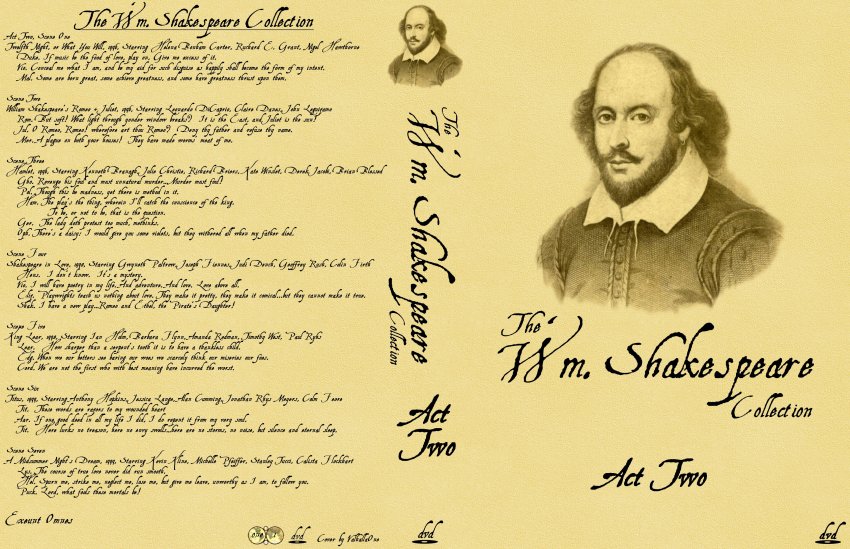 The Wm. Shakespeare Collection
Act Two, Scene One
Twelfth Night, or What You Will, 1996, Starring Helena Bonham Carter, Richard E. Grant, Nigel Hawthorne
Duke. If music be the food of love, play on, Give me excess of it.
Vio. Conceal me what I am, and be my aid for such disguise as haply shall become the form of my intent.
Mal. Some are born great, some achieve greatness, and some have greatness thrust upon them.
Scene Two
William Shakespeare's Romeo + Juliet, 1996, Starring Leonardo DiCaprio, Claire Danes, John Leguizamo
Rom. But soft! What light through yonder window breaks?? It is the East, and Juliet is the sun!
Jul. O Romeo, Romeo! wherefore art thou Romeo? Deny thy father and refuse thy name.
Mer. A plague on both your houses! They have made worms meat of me.
Scene Three
Hamlet, 1996, Starring Kenneth Branagh, Julie Christie, Richard Briers, Kate Winslet, Derek Jacobi, Brian Blessed
Gho. Revenge his foul and most unnatural murder...Murder most foul!
Pol. Though this be madness, yet there is method in it.
Ham. The play's the thing, wherein I'll catch the conscience of the king.
To be, or not to be, that is the question.
Ger. The lady doth protest too much, methinks.
Oph. There's a daisy; I would give you some violets, but they withered all when my father died.
Scene Four
Shakespeare in Love, 1998, Starring Gwyneth Paltrow, Joseph Fiennes, Judi Dench, Geoffrey Rush, Colin Firth
Hens. I don't know. It's a mystery.
Vio. I will have poetry in my life. And adventure. And love. Love above all.
Eliz. Playwrights teach us nothing about love. They make it pretty, they make it comical...but they cannot make it true.
Shak. I have a new play...Romeo and Ethel, the Pirate's Daughter!
Scene Five
King Lear, 1998, Starring Ian Holm, Barbara Flynn, Amanda Redman, Timothy West, Paul Rhys
Lear. How sharper than a serpent's tooth it is to have a thankless child.
Edg. When we our betters see baring our woes we scarcely think our miseries our foes.
Cord. We are not the first who with best meaning have incurred the worst.
Scene Six
Titus, 1999, Starring Anthony Hopkins, Jessica Lange, Alan Cumming, Jonathan Rhys Meyers, Colm Feore
Tit. These words are razors to my wounded heart
Aar. If one good deed in all my life I did, I do repent it from my very soul.
Tit. Here lurks no treason, here no envy swells...here are no storms, no noise, but silence and eternal sleep.
Scene Seven
A Midsummer Night's Dream, 1999, Starring Kevin Kline, Michelle Pfeiffer, Stanley Tucci, Calista Flockhart
Lys. The course of true love never did run smooth.
Hel. Spurn me, strike me, neglect me, lose me, but give me leave, unworthy as I am, to follow you.
Puck. Lord, what fools these mortals be!
Exeunt Omnes
one
dvd
Cover by ValhallaOne
The
Wm. Shakespeare
Collection
Act
Two
dvd
The
Wm. Shakespeare
Collection
Act Two
dvd